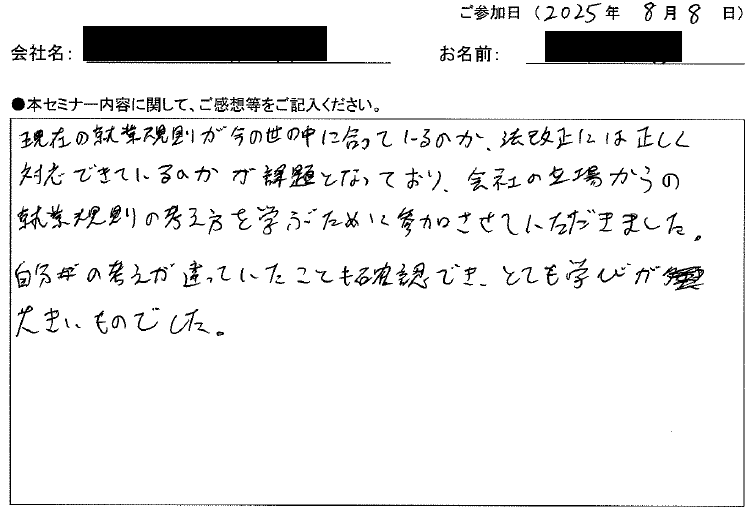 ご参加日 (2025年 8月 8日)
会社名: お名前:
●本セミナー内容に関して、ご感想等をご記入ください。
現在の就業規則が今の世の中に合っているのか、法改正には正しく
対応できているのかが課題となっており、会社の立場からの
就業規則の考え方を学ぶために参加させていただきました。
自分の考えが違っていたことも確認でき、とても学びが
大きいものでした。